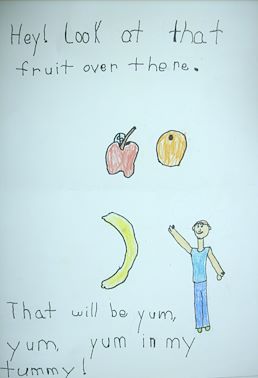 Hey! Look at that
fruit over there.
That will be yum,
yum, yum in my
tummy!